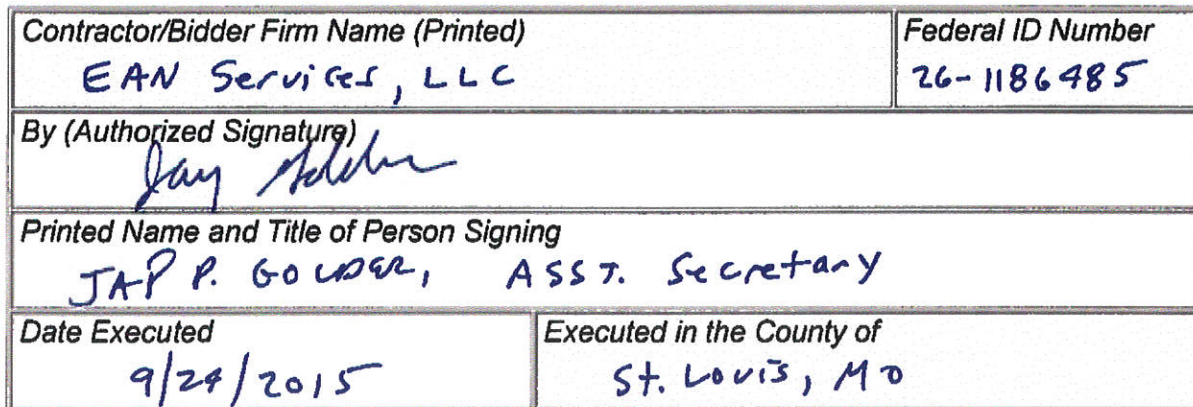 Contractor/Bidder Firm Name (Printed)
Federal ID Number
EAN Services, LLC
26-1186485
By (Authorized Signature)
Jay Golder
Printed Name and Title of Person Signing
JAP P. GOLDER, ASST. Secretary
Date Executed
Executed in the County of
9/24/2015
St. Louis, MO